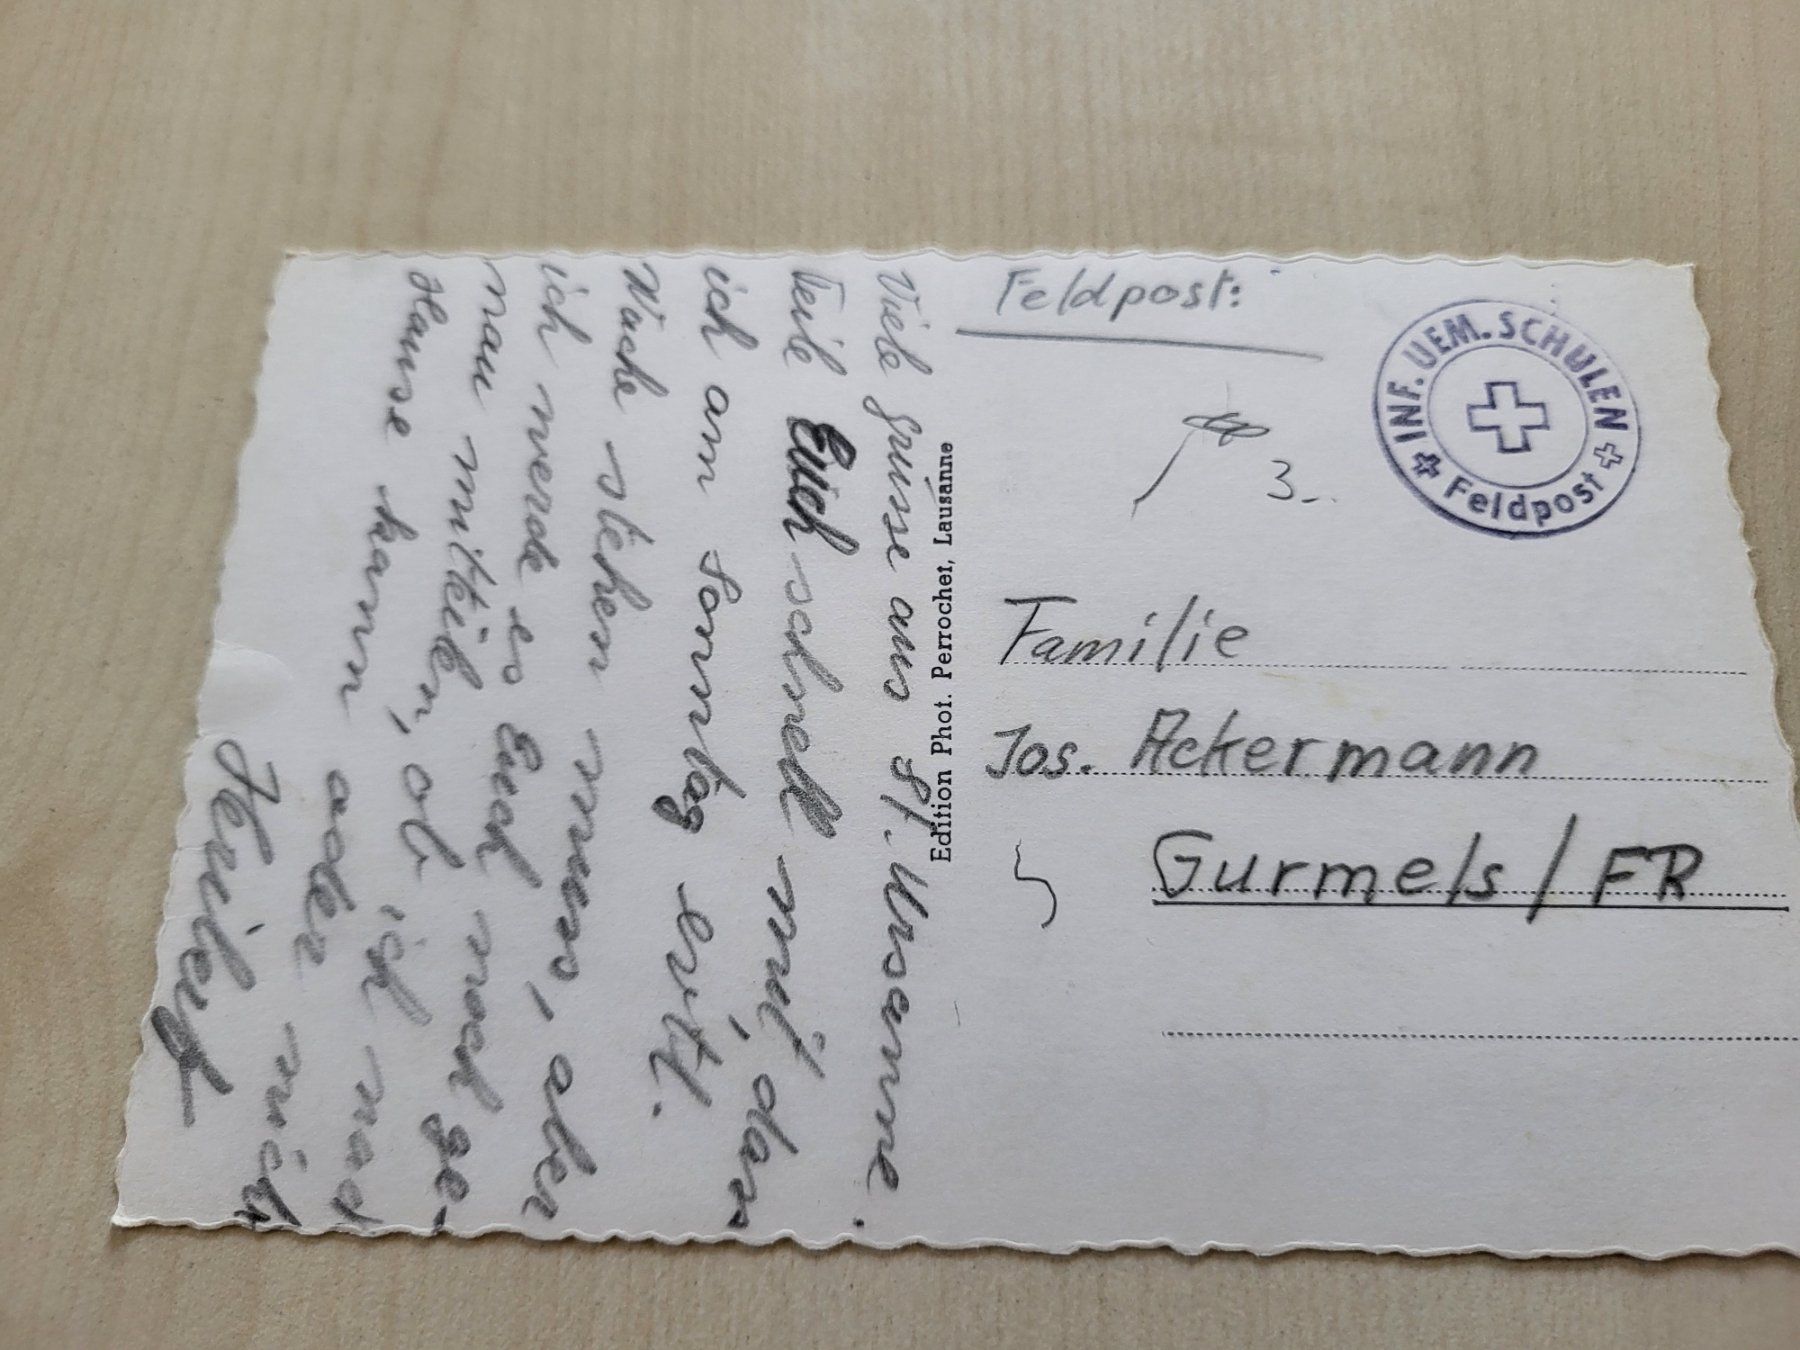 Viele grüsse aus St. Ursanne.
Teile Euch schnell mit, dass
ich am Sonntag evtl.
Wache stehen muss, aber
ich werde es Euch noch ge-
nau mitteilen, ob ich nach
Hause kann oder nicht
Edition Phot. Perrochet, Lausanne
Feldpost:
INF. UEM. SCHULEN
Feldpost
3.
Familie
Jos. Ackermann
5
Gurmels / FR